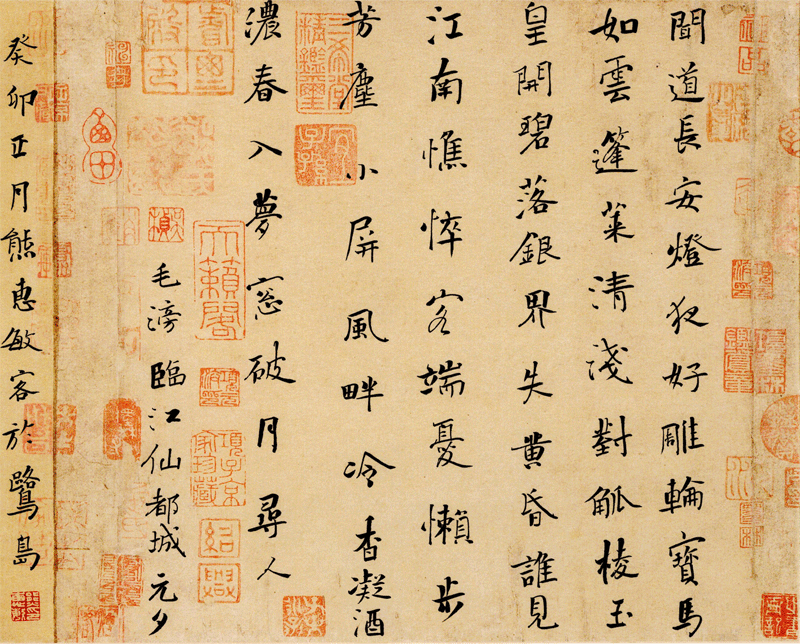 聞道長安燈夜好雕輪寶馬
如雲蓬萊清淺對觚棱玉
皇開碧落銀界失黄昏誰見
江南憔悴客端憂懶步
芳塵小屏風畔冷香凝酒
濃春入夢窓破月尋人
毛滂臨江仙都城元夕
癸卯正月熊惠敏客於鷺島
天籟閣
項子京家珍藏